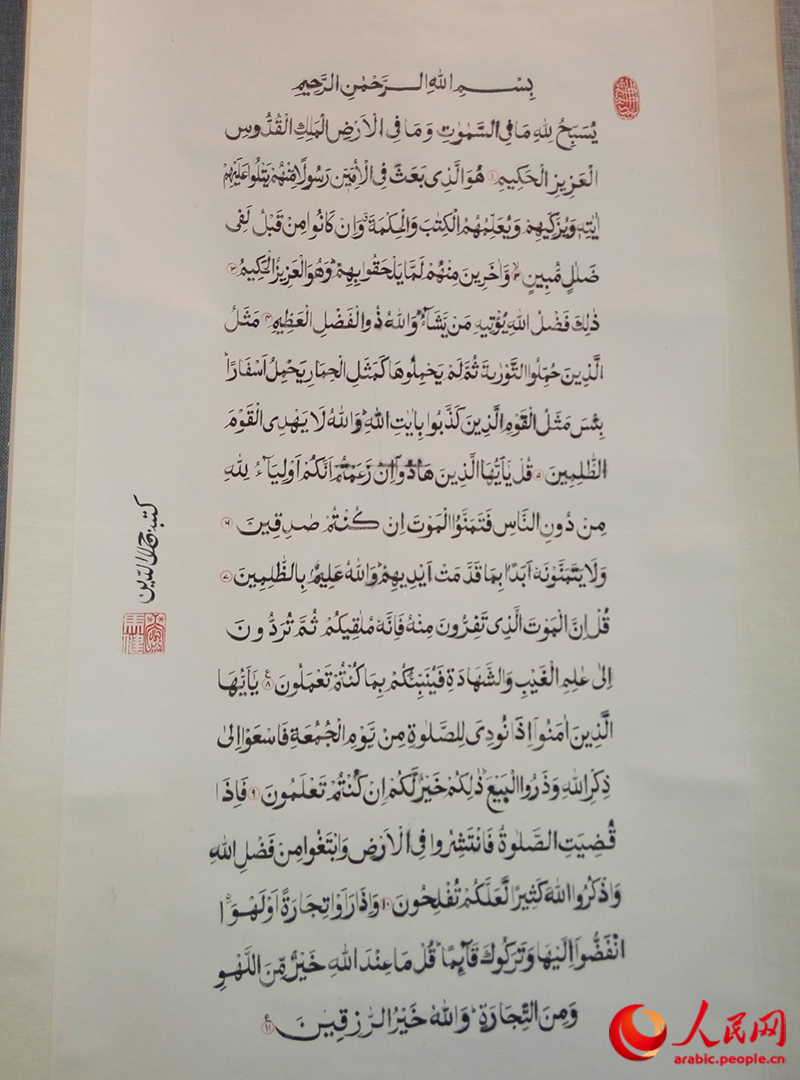 بِسْمِ اللهِ الرَّحْمٰنِ الرَّحِيْمِ
يُسَبِّحُ لِلهِ مَا فِى السَّمٰوٰتِ وَمَا فِى الْاَرْضِ الْمَلِكِ الْقُدُّوْسِ
الْعَزِيْزِ الْحَكِيْمِ ١ هُوَ الَّذِى بَعَثَ فِى الْاُمِّيّٖنَ رَسُوْلًا مِنْهُمْ يَتْلُوا عَلَيْهِمْ
اٰيٰتِهٖ وَيُزَكِّيْهِمْ وَيُعَلِّمُهُمُ الْكِتٰبَ وَالْحِكْمَةَ وَاِنْ كَانُوا مِنْ قَبْلُ لَفِى
ضَلٰلٍ مُّبِيْنٍ ٢ وَاٰخَرِيْنَ مِنْهُمْ لَمَّا يَلْحَقُوا بِهِمْ وَهُوَ الْعَزِيْزُ الْحَكِيْمُ ٣
ذٰلِكَ فَضْلُ اللهِ يُؤْتِيْهِ مَنْ يَشَآءُ وَاللهُ ذُو الْفَضْلِ الْعَظِيْمِ ٤ مَثَلُ
الَّذِيْنَ حُمِّلُوا التَّوْرٰىةَ ثُمَّ لَمْ يَحْمِلُوْهَا كَمَثَلِ الْحِمَارِ يَحْمِلُ اَسْفَارًا
بِئْسَ مَثَلُ الْقَوْمِ الَّذِيْنَ كَذَّبُوا بِاٰيٰتِ اللهِ وَاللهُ لَا يَهْدِى الْقَوْمَ
الظّٰلِمِيْنَ ٥ قُلْ يٰٓاَيُّهَا الَّذِيْنَ هَادُوْٓا اِنْ زَعَمْتُمْ اَنَّكُمْ اَوْلِيَآءُ لِلهِ
مِنْ دُوْنِ النَّاسِ فَتَمَنَّوُا الْمَوْتَ اِنْ كُنْتُمْ صٰدِقِيْنَ ٦
وَلَا يَتَمَنَّوْنَهٗ اَبَدًا بِمَا قَدَّمَتْ اَيْدِيْهِمْ وَاللهُ عَلِيْمٌ بِالظّٰلِمِيْنَ ٧
قُلْ اِنَّ الْمَوْتَ الَّذِى تَفِرُّوْنَ مِنْهُ فَاِنَّهٗ مُلٰقِيْكُمْ ثُمَّ تُرَدُّوْنَ
اِلٰى عٰلِمِ الْغَيْبِ وَالشَّهَادَةِ فَيُنَبِّئُكُمْ بِمَا كُنْتُمْ تَعْمَلُوْنَ ٨ يٰٓاَيُّهَا
الَّذِيْنَ اٰمَنُوْٓا اِذَا نُوْدِىَ لِلصَّلٰوةِ مِنْ يَوْمِ الْجُمُعَةِ فَاسْعَوْا اِلٰى
ذِكْرِ اللهِ وَذَرُوا الْبَيْعَ ذٰلِكُمْ خَيْرٌ لَّكُمْ اِنْ كُنْتُمْ تَعْلَمُوْنَ ٩ فَاِذَا
قُضِيَتِ الصَّلٰوةُ فَانْتَشِرُوا فِى الْاَرْضِ وَابْتَغُوا مِنْ فَضْلِ اللهِ
وَاذْكُرُوا اللهَ كَثِيْرًا لَّعَلَّكُمْ تُفْلِحُوْنَ ١٠ وَاِذَا رَاَوْا تِجَارَةً اَوْ لَهْوَا
انْفَضُّوْٓا اِلَيْهَا وَتَرَكُوْكَ قَآئِمًا قُلْ مَا عِنْدَ اللهِ خَيْرٌ مِّنَ اللَّهْوِ
وَمِنَ التِّجَارَةِ وَاللهُ خَيْرُ الرّٰزِقِيْنَ ١١
كتبه جلال الدين
人民网
arabic.people.cn